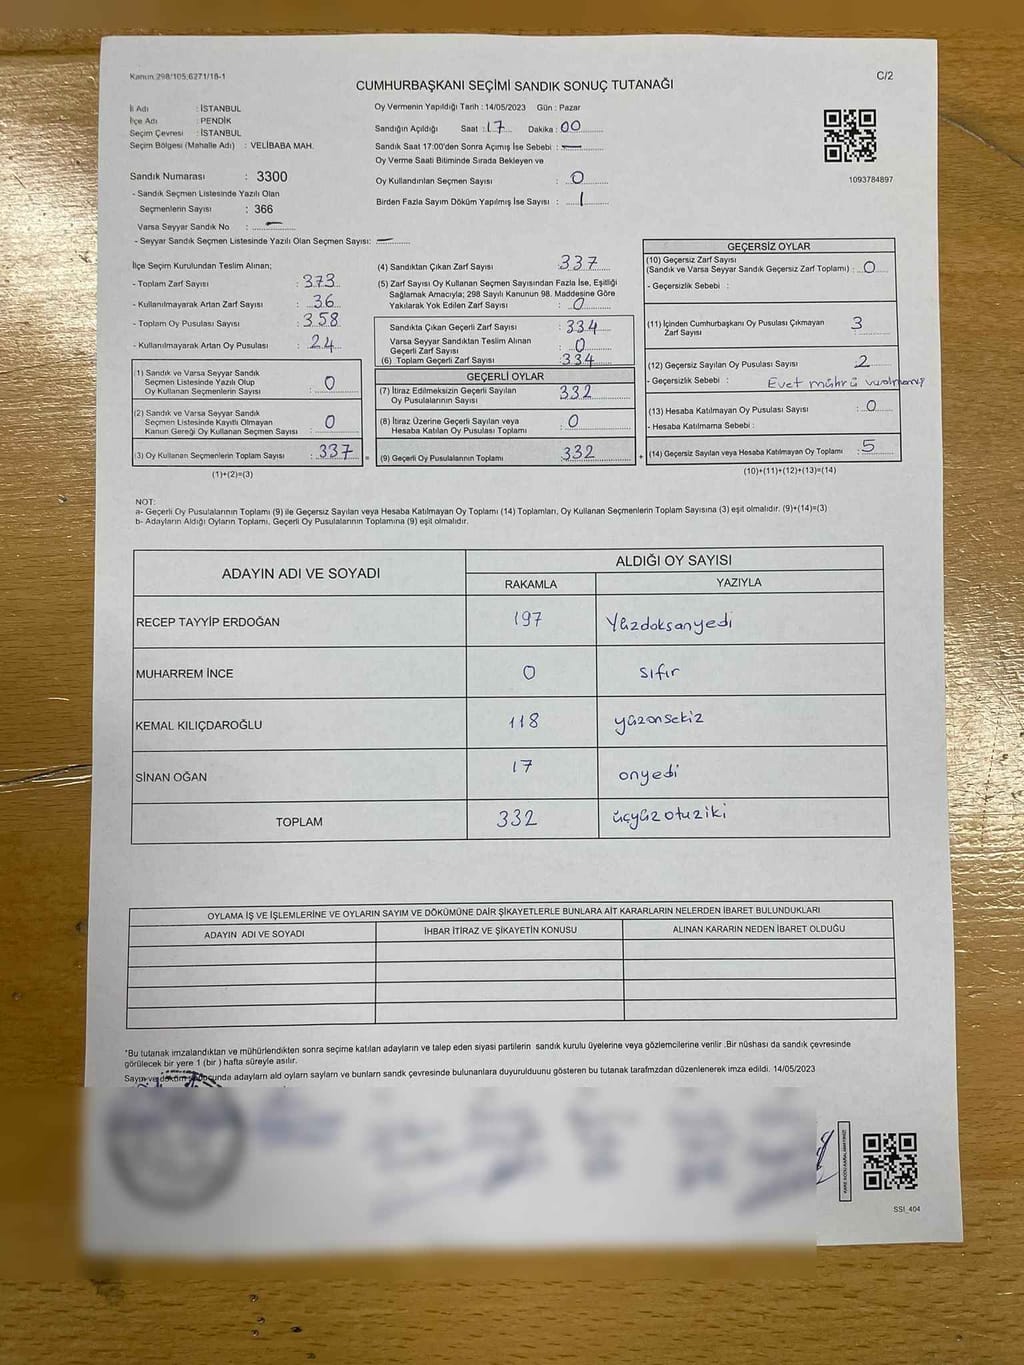 Kanun:298/105,6271/18-1
C/2
CUMHURBAŞKANI SEÇİMİ SANDIK SONUÇ TUTANAĞI
İl Adı : İSTANBUL
İlçe Adı : PENDİK
Seçim Çevresi : İSTANBUL
Seçim Bölgesi (Mahalle Adı) : VELİBABA MAH.
Sandık Numarası : 3300
- Sandık Seçmen Listesinde Yazılı Olan
Seçmenlerin Sayısı : 366
Varsa Seyyar Sandık No : —
- Seyyar Sandık Seçmen Listesinde Yazılı Olan Seçmen Sayısı: —
Oy Vermenin Yapıldığı Tarih : 14/05/2023 Gün : Pazar
Sandığın Açıldığı Saat : 17 Dakika : 00
Sandık Saat 17:00'den Sonra Açımış İse Sebebi : —
Oy Verme Saati Bitiminde Sırada Bekleyen ve
Oy Kullandırılan Seçmen Sayısı : 0
Birden Fazla Sayım Döküm Yapılmış İse Sayısı : 1
1093784897
İlçe Seçim Kurulundan Teslim Alınan;
- Toplam Zarf Sayısı : 373
- Kullanılmayarak Artan Zarf Sayısı : 36
- Toplam Oy Pusulası Sayısı : 358
- Kullanılmayarak Artan Oy Pusulası : 24
(1) Sandık ve Varsa Seyyar Sandık
Seçmen Listesinde Yazılı Olup
Oy Kullanan Seçmenlerin Sayısı : 0
(2) Sandık ve Varsa Seyyar Sandık
Seçmen Listesinde Kayıtlı Olmayan
Kanun Gereği Oy Kullanan Seçmen Sayısı : 0
(3) Oy Kullanan Seçmenlerin Toplam Sayısı : 337 =
(1)+(2)=(3)
(4) Sandıktan Çıkan Zarf Sayısı : 337
(5) Zarf Sayısı Oy Kullanan Seçmen Sayısından Fazla İse, Eşitliği
Sağlamak Amacıyla; 298 Sayılı Kanunun 98. Maddesine Göre
Yakılarak Yok Edilen Zarf Sayısı : 0
Sandıkta Çıkan Geçerli Zarf Sayısı : 334
Varsa Seyyar Sandıktan Teslim Alınan
Geçerli Zarf Sayısı : 0
(6) Toplam Geçerli Zarf Sayısı : 334
GEÇERLİ OYLAR
(7) İtiraz Edilmeksizin Geçerli Sayılan
Oy Pusulalarının Sayısı : 332
(8) İtiraz Üzerine Geçerli Sayılan veya
Hesaba Katılan Oy Pusulası Toplamı : 0
(9) Geçerli Oy Pusulalarının Toplamı : 332 +
GEÇERSİZ OYLAR
(10) Geçersiz Zarf Sayısı
(Sandık ve Varsa Seyyar Sandık Geçersiz Zarf Toplamı) : 0
- Geçersizlik Sebebi :
(11) İçinden Cumhurbaşkanı Oy Pusulası Çıkmayan
Zarf Sayısı : 3
(12) Geçersiz Sayılan Oy Pusulası Sayısı : 2
- Geçersizlik Sebebi : Evet mührü vurulmamış
(13) Hesaba Katılmayan Oy Pusulası Sayısı : 0
- Hesaba Katılmama Sebebi :
(14) Geçersiz Sayılan veya Hesaba Katılmayan Oy Toplamı : 5
(10)+(11)+(12)+(13)=(14)
NOT:
a- Geçerli Oy Pusulalarının Toplamı (9) ile Geçersiz Sayılan veya Hesaba Katılmayan Oy Toplamı (14) Toplamları, Oy Kullanan Seçmenlerin Toplam Sayısına (3) eşit olmalıdır. (9)+(14)=(3)
b- Adayların Aldığı Oyların Toplamı, Geçerli Oy Pusulalarının Toplamına (9) eşit olmalıdır.
ADAYIN ADI VE SOYADI ALDIĞI OY SAYISI
RAKAMLA YAZIYLA
RECEP TAYYİP ERDOĞAN 197 Yüzdoksanyedi
MUHARREM İNCE 0 sıfır
KEMAL KILIÇDAROĞLU 118 yüzonsekiz
SİNAN OĞAN 17 onyedi
TOPLAM 332 üçyüzotuziki
OYLAMA İŞ VE İŞLEMLERİNE VE OYLARIN SAYIM VE DÖKÜMÜNE DAİR ŞİKAYETLERLE BUNLARA AİT KARARLARIN NELERDEN İBARET BULUNDUKLARI
ADAYIN ADI VE SOYADI İHBAR İTİRAZ VE ŞİKAYETİN KONUSU ALINAN KARARIN NEDEN İBARET OLDUĞU
*Bu tutanak imzalandıktan ve mühürlendikten sonra seçime katılan adayların ve talep eden siyasi partilerin sandık kurulu üyelerine veya gözlemcilerine verilir .Bir nüshası da sandık çevresinde
görülecek bir yere 1 (bir ) hafta süreyle asılır.
Sayım ve döküm sonucunda adayların ald oyların sayların ve bunların sandk çevresinde bulunanlara duyurulduunu gösteren bu tutanak tarafmzdan düzenlenerek imza edildi. 14/05/2023
SSI_404